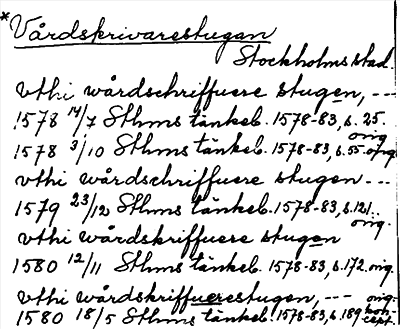 *Vårdskrivarestugan
Stockholms stad.
vthi wårdschriffuere stugen, ---
1578 14/7 Sthms tänkeb. 1578-83, s. 25. orig
1578 3/10 Sthms tänkeb. 1578-83, s. 55. orig
vthi wårdschriffuere stugen ---
1579 23/12 Sthms tänkeb. 1578-83, s. 121. orig.
vthi wårdskriffuere stugen
1580 12/11 Sthms tänkeb. 1578-83, s. 172. orig.
vthi wårdskriffuerestugen, --- orig.
1580 18/5 Sthms tänkeb. 1578-83, s. 189 koncept.